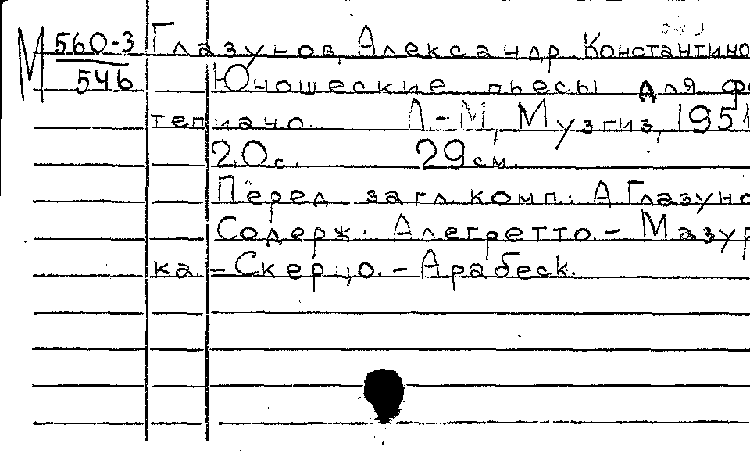 М 560-3 Глазунов, Александр Константино
546 Юношеские пьесы для фо
тепиано. Л-М, Музгиз, 1951
20с. 29см.
Перед загл. комп.: А Глазуно
Содерж.: Алегретто.- Мазур
ка -Скерцо.- Арабеск.